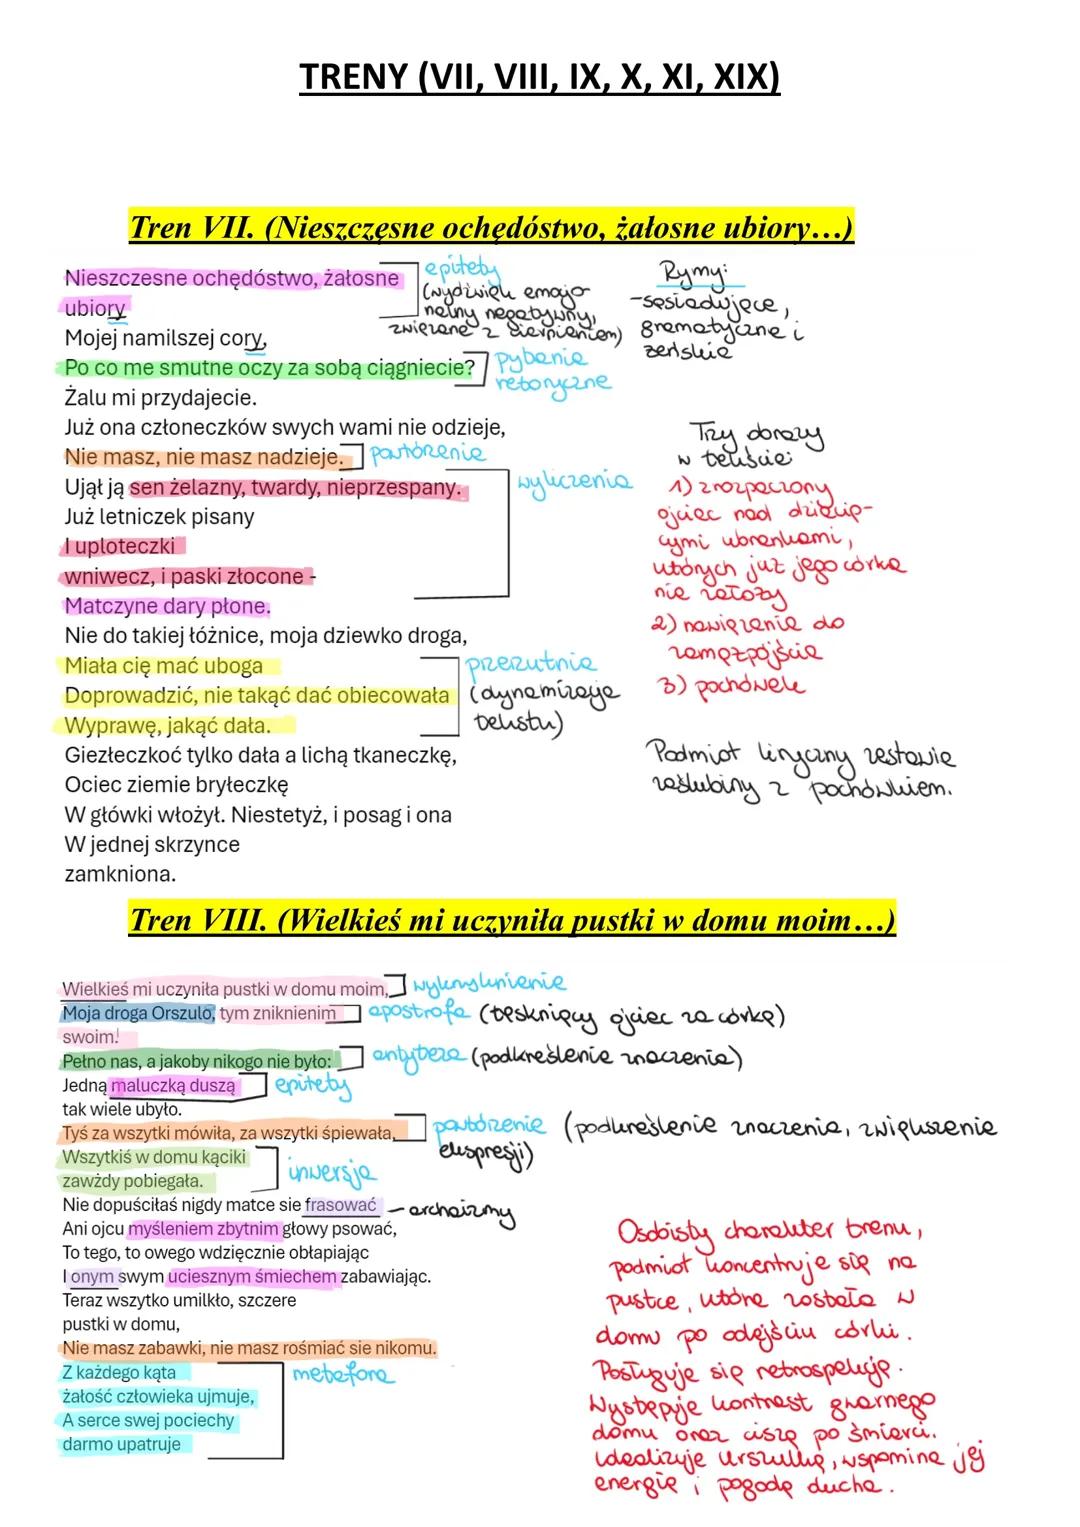 TRENY (VII, VIII, IX, X, XI, XIX)
Tren VII. (Nieszczęsne ochędóstwo, żałosne ubiory…)
Nieszczesne ochędóstwo, żałosne
ubiory
Mojej namilszej cory,
Po co me smutne oczy za sobą ciągniecie?
Żalu mi przydajecie.
Już ona członeczków swych wami nie odzieje,
Nie masz, nie masz nadzieje.
Ujął ją sen żelazny, twardy, nieprzespany.
Już letniczek pisany
I uploteczki
wniwecz, i paski złocone -
Matczyne dary płone.
Nie do takiej łóżnice, moja dziewko droga,
Miała cię mać uboga
Doprowadzić, nie takąć dać obiecowała
Wyprawę, jakąć dała.
Giezłeczkoć tylko dała a lichą tkaneczkę,
Ociec ziemie bryłeczkę
W główki włożył. Niestetyż, i posag i ona
W jednej skrzynce
zamkniona.
epitety
(wydźwięk emocjo-
nalny negatywny,
związane z cierpieniem)
pytanie
retoryczne
powtórzenie
wyliczenia
przerzutnia
(dynamizacja
tekstu)
Rymy:
-sąsiadujące,
gramatyczne i
żeńskie
Trzy obrazy
w tekście:
1) zrozpaczony
ojciec nad dziecię-
cymi ubrankami,
których już jego córka
nie założy
2) nawiązanie do
zamążpójścia
3) pochówek
Podmiot liryczny zestawia
zaślubiny z pochówkiem.
Tren VIII. (Wielkieś mi uczyniła pustki w domu moim…)
Wielkieś mi uczyniła pustki w domu moim,
Moja droga Orszulo, tym zniknienim
swoim!
Pełno nas, a jakoby nikogo nie było:
Jedną maluczką duszą
tak wiele ubyło.
Tyś za wszytki mówiła, za wszytki śpiewała,
Wszytkiś w domu kąciki
zawżdy pobiegała.
Nie dopuściłaś nigdy matce sie frasować
Ani ojcu myśleniem zbytnim głowy psować,
To tego, to owego wdzięcznie obłapiając
I onym swym uciesznym śmiechem zabawiając.
Teraz wszytko umilkło, szczere
pustki w domu,
Nie masz zabawki, nie masz rośmiać sie nikomu.
Z każdego kąta
żałość człowieka ujmuje,
A serce swej pociechy
darmo upatruje
wykrzyknienie
apostrofa (tęskniący ojciec za córką)
antyteza (podkreślenie znaczenia)
epitety
powtórzenie (podkreślenie znaczenia, zwiększenie
ekspresji)
inwersja
- archaizmy
metafora
Osobisty charakter trenu,
podmiot koncentruje się na
pustce, która została w
domu po odejściu córki.
Posługuje się retrospekcją.
Występuje kontrast gwarnego
domu oraz ciszą po śmierci.
idealizuje Urszulkę, wspomina jej
energię i pogodę ducha.